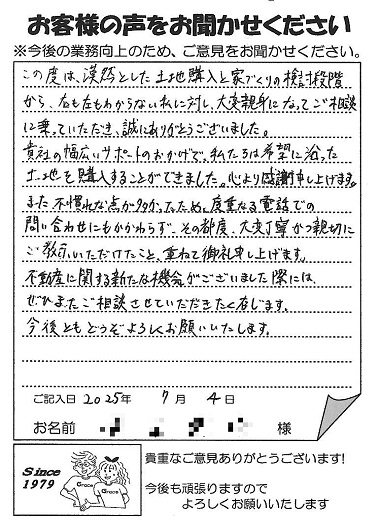 お客様の声をお聞かせください
※今後の業務向上のため、ご意見をお聞かせください。
この度は、漠然とした土地購入と家づくりの検討段階
から、右も左もわからない私に対し、大変親身になってご相談
に乗っていただき、誠にありがとうございました。
貴社の幅広いサポートのおかげで、私たちは希望に沿った
土地を購入することができました。心より感謝申し上げます。
また不慣れな点が多かったため、度重なる電話での
問い合わせにもかかわらず、その都度、大変丁寧かつ親切に
ご教示いただけたこと、重ねて御礼申し上げます。
不動産に関する新たな機会がございました際には、
ぜひまたご相談させていただきたく存じます。
今後ともどうぞよろしくお願いいたします。
ご記入日 2025年 7月 4日
お名前 様
Since
1979
Grace
Grace
貴重なご意見ありがとうございます!
今後も頑張りますので
よろしくお願いいたします